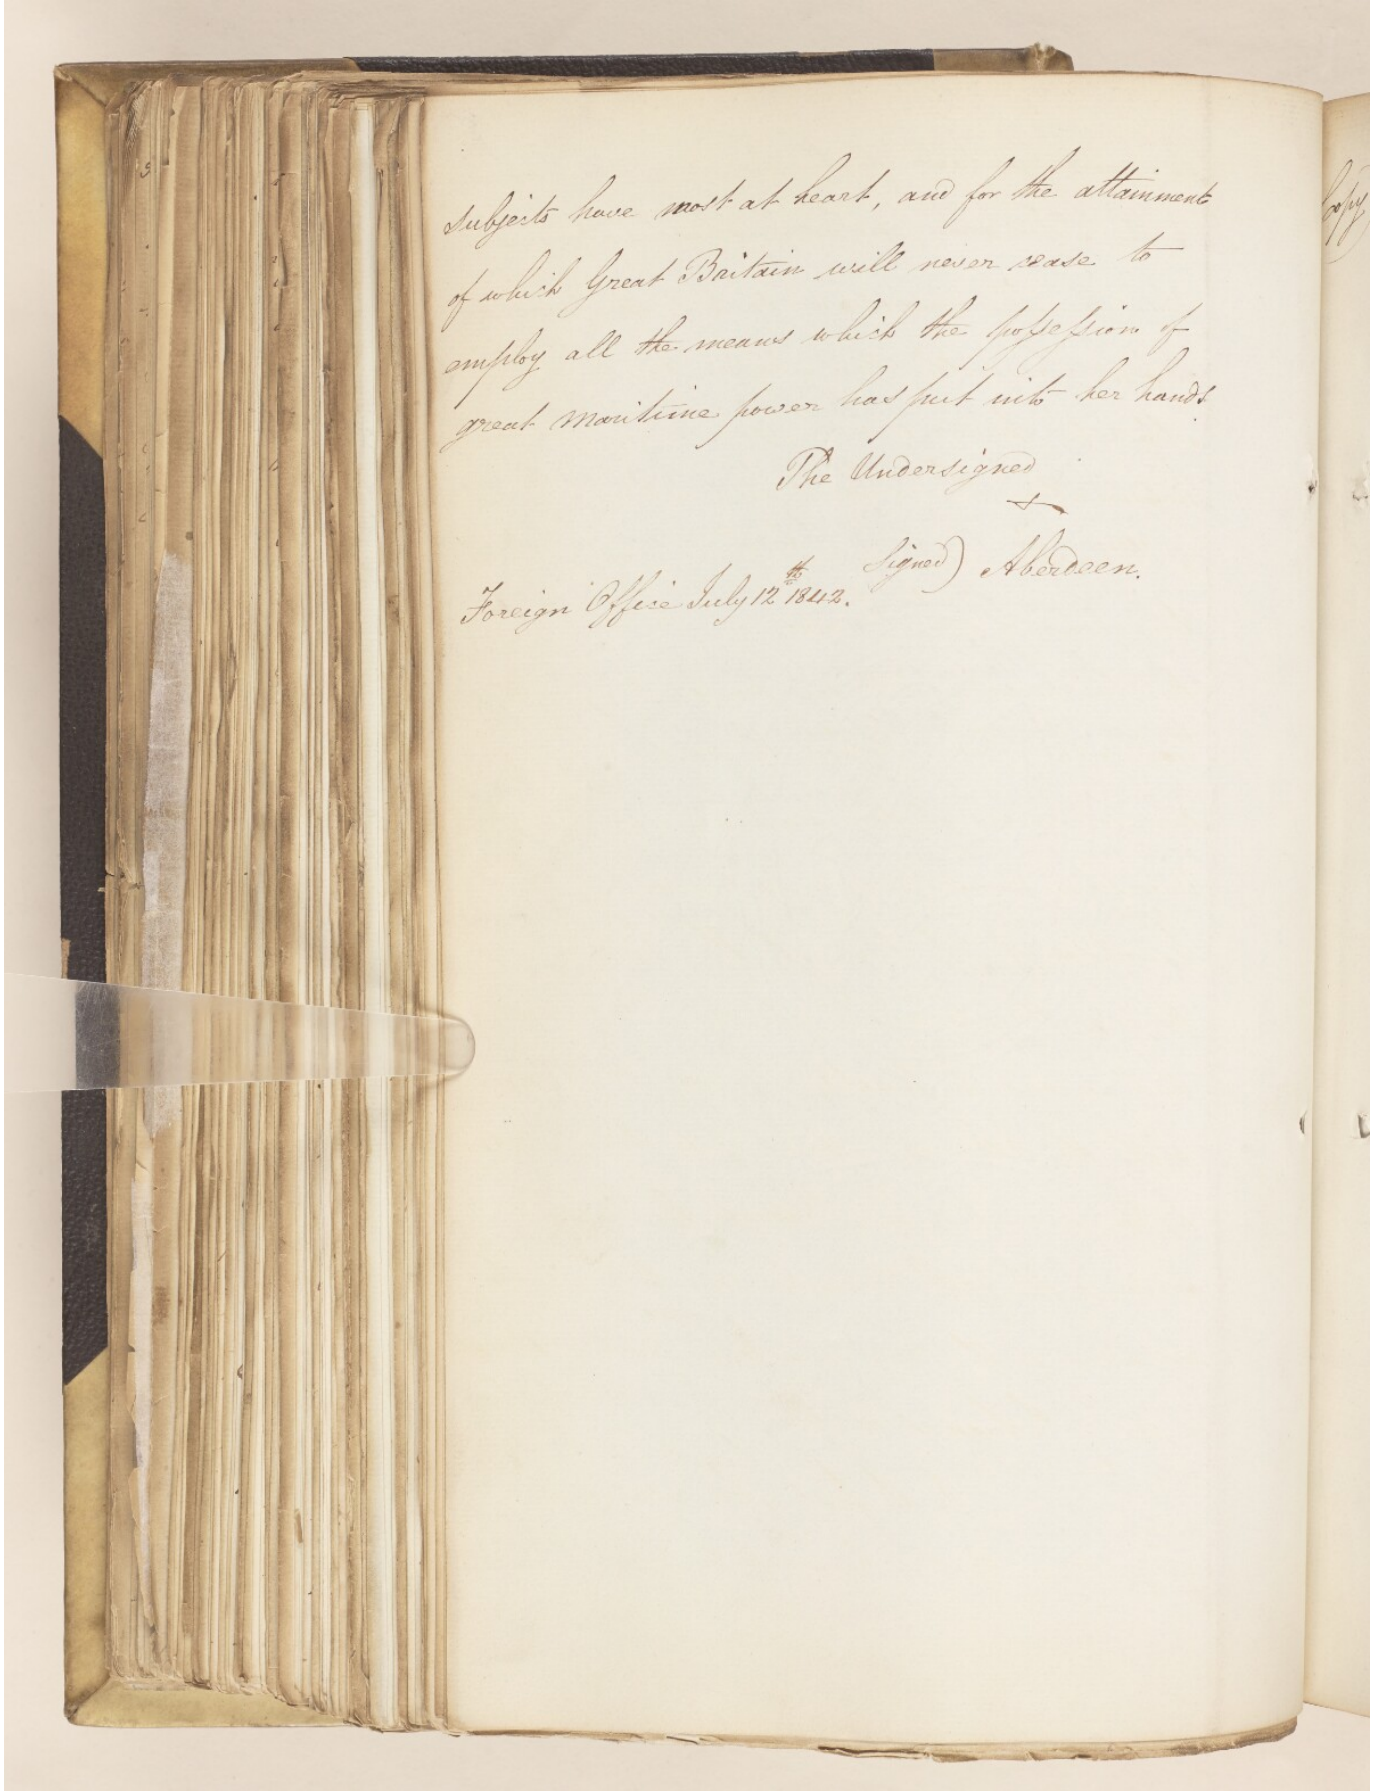 subjects have most at heart, and for the attainment
of which Great Britain will never cease to
employ all the means which the possession of
great maritime power has put into her hands.
The Undersigned
Signed) Aberdeen.
Foreign Office July 12th 1842.
Copy)